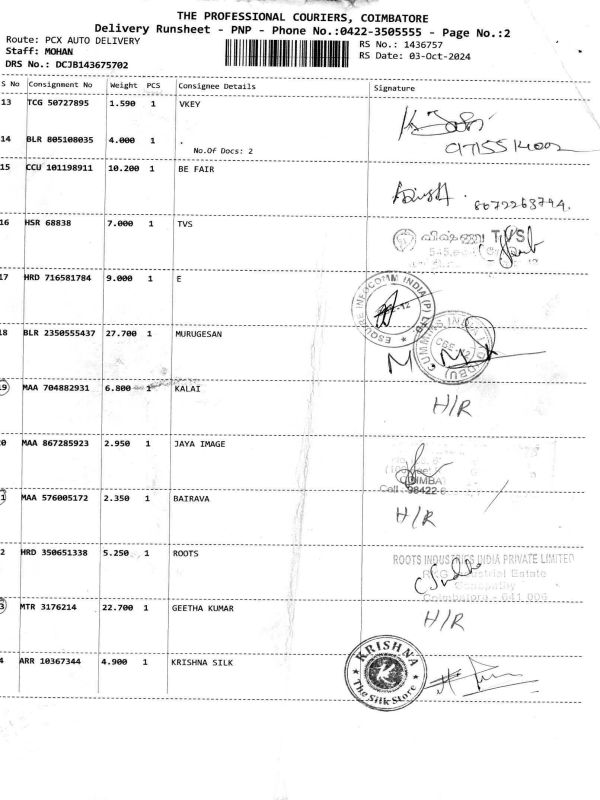 THE PROFESSIONAL COURIERS, COIMBATORE
Delivery Runsheet - PNP - Phone No.:0422-3505555 - Page No.:2
Route: PCX AUTO DELIVERY
RS No.: 1436757
Staff: MOHAN
RS Date: 03-Oct-2024
DRS No.: DCJB143675702
S No Consignment No Weight PCS Consignee Details Signature
13 TCG 50727895 1.590 1 VKEY
14 BLR 805108035 4.000 1 .
No.Of Docs: 2
15 CCU 101198911 10.200 1 BE FAIR
8072263794.
16 HSR 68838 7.000 1 TVS
விஷ்ணு TVS
17 HRD 716581784 9.000 1 E
ESQUIRE INFOCOMM INDIA (P) LTD.
18 BLR 2350555437 27.700 1 MURUGESAN
19 MAA 704882931 6.800 1 KALAI
H/R
0 MAA 867285923 2.950 1 JAYA IMAGE
1 MAA 576005172 2.350 1 BAIRAVA
H/R
2 HRD 350651338 5.250 1 ROOTS
ROOTS INDUSTRIES INDIA PRIVATE LIMITED
Industrial Estate
Coimbatore - 641 006
3 MTR 3176214 22.700 1 GEETHA KUMAR
H/R
4 ARR 10367344 4.900 1 KRISHNA SILK
KRISHNA
The Silk Store